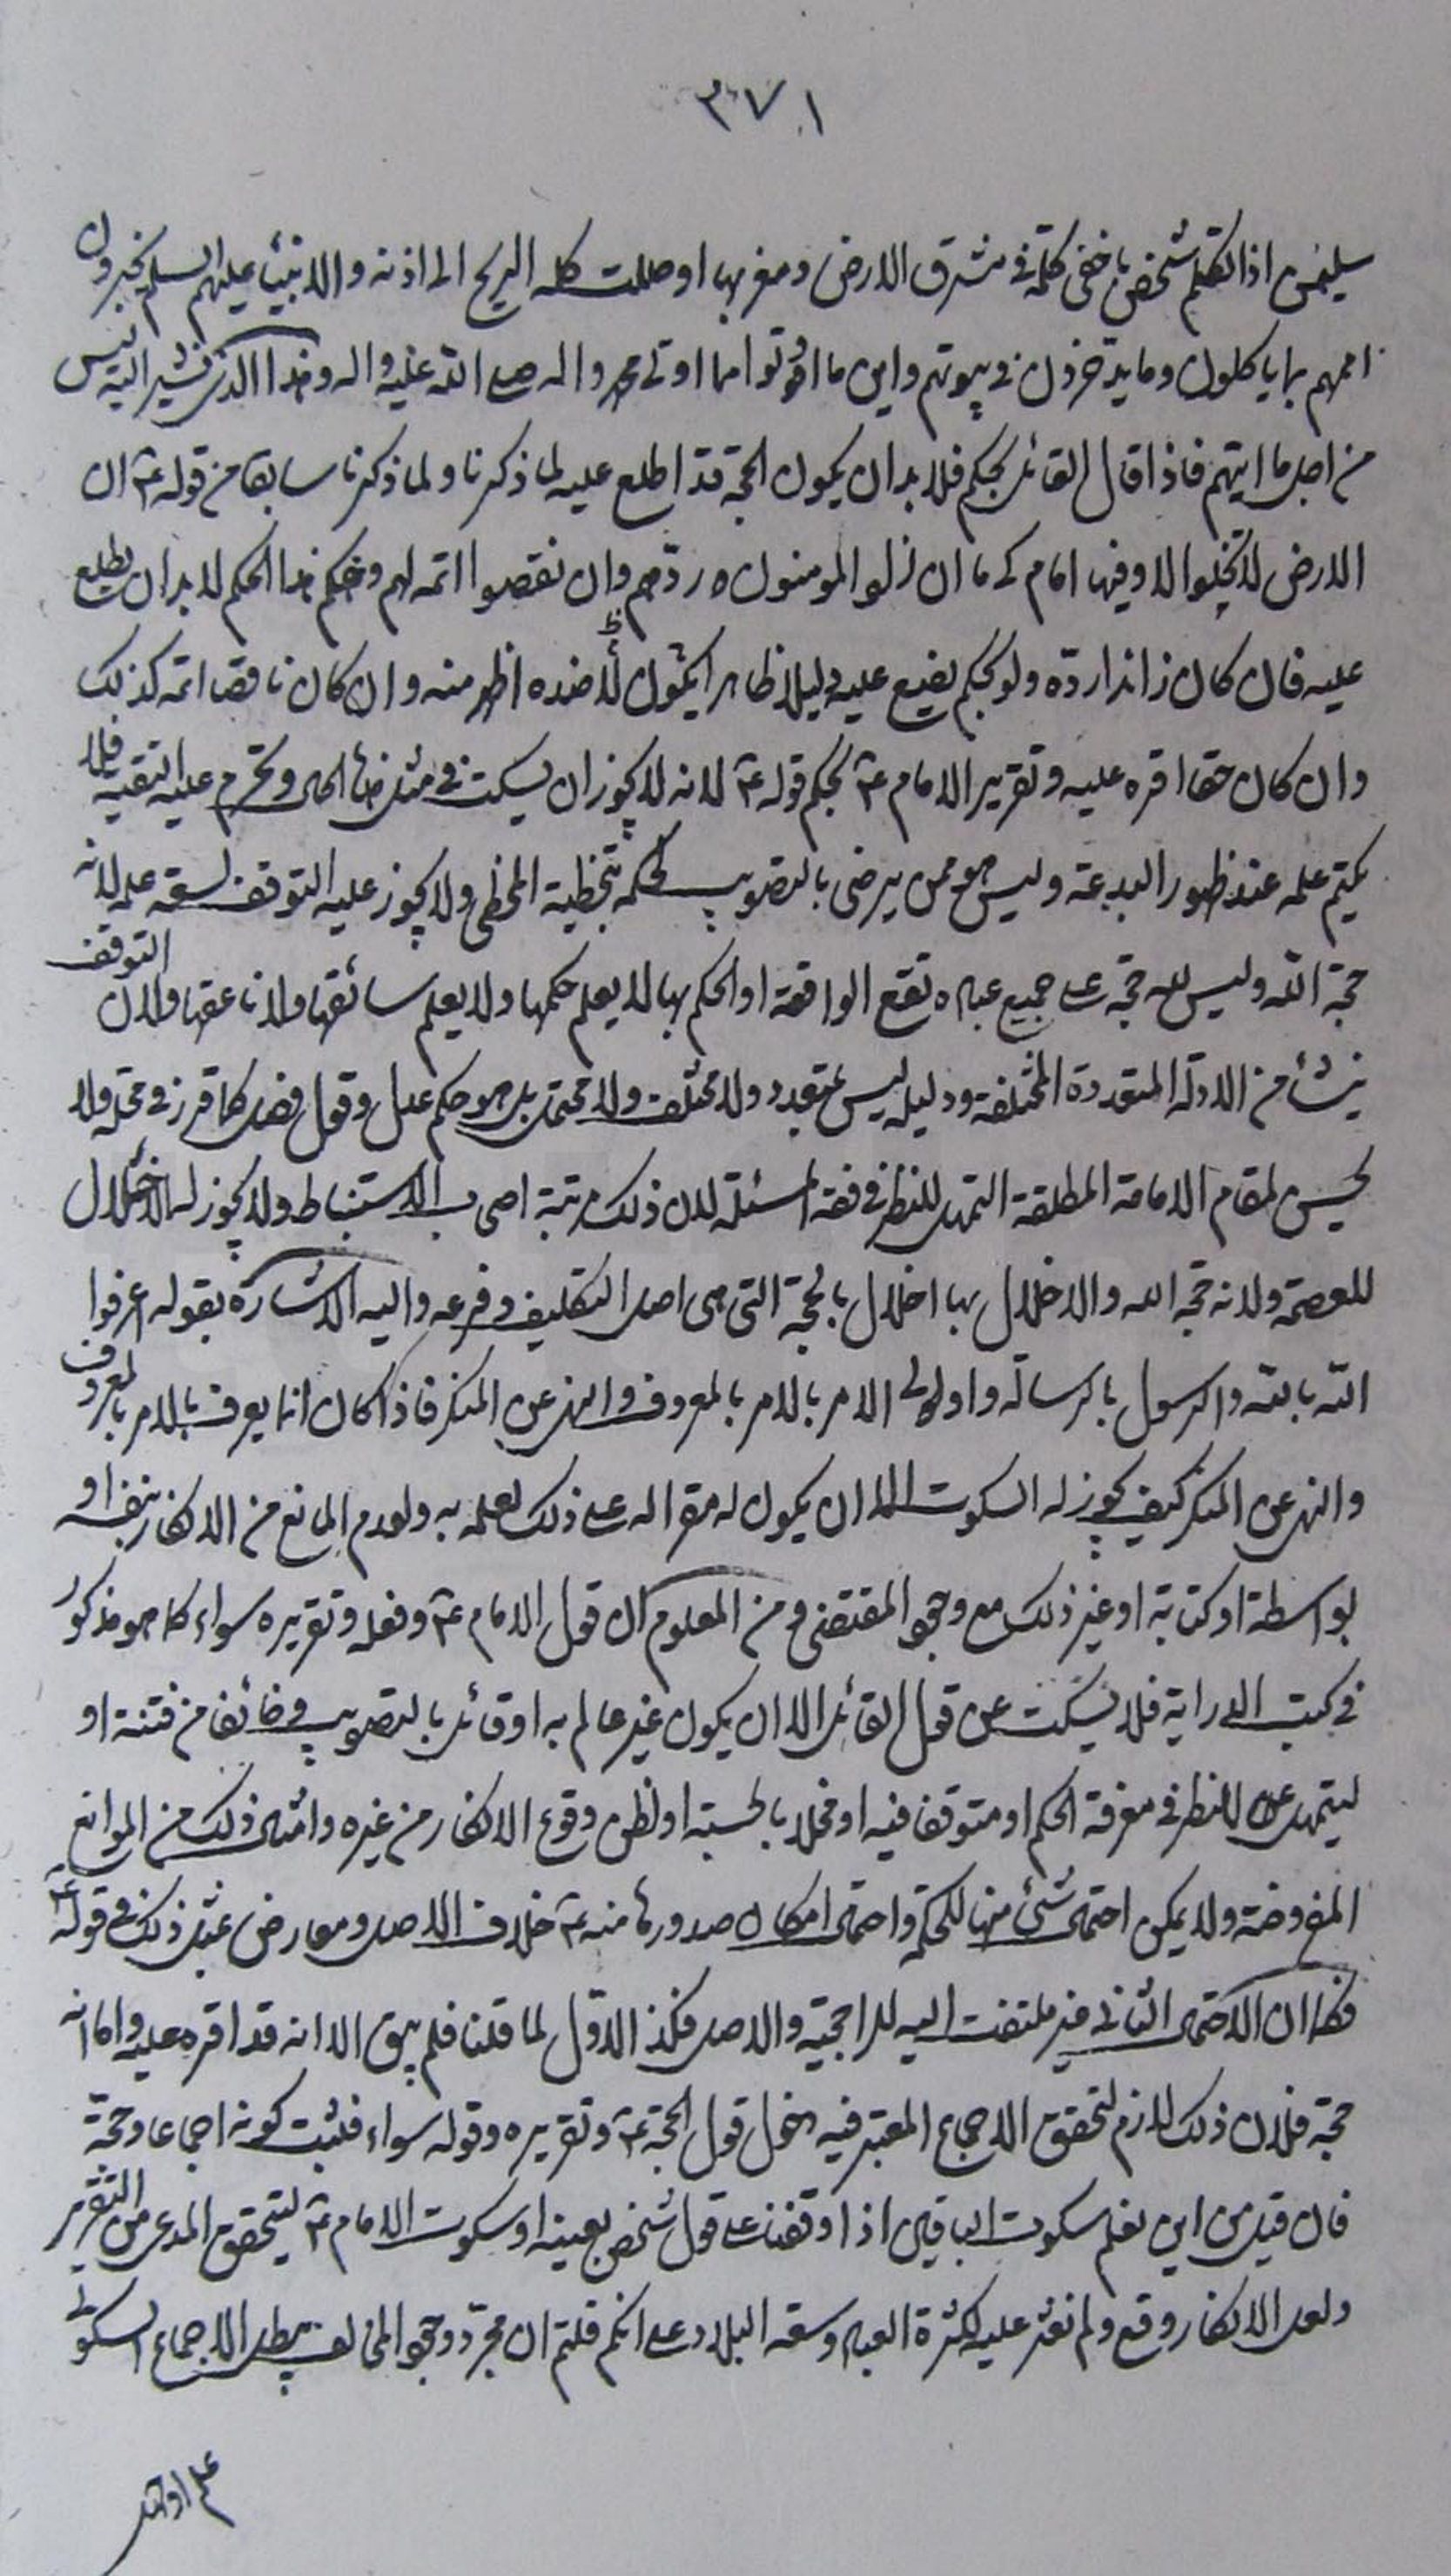 ٣٧١
سليمن اذا تكلم شخص باخفى كلمة في مشرق الارض ومغربها اوصلت كلمه الريح الى اذنه والانبياء عليهم السلم يخبرون
اممهم بما ياكلون وما يدخرون في بيوتهم واين ما اوتوا مما اوتى محمد واله صلى الله عليه واله وهذا الذي نشير اليه ليس
من اجل ما ايتهم فاذا قال القائل بحكم فلا بد ان يكون الحجة قد اطلع عليه لما ذكرنا ولما ذكرنا سابقا من قوله ع ان
الارض لا تخلوا الا وفيها امام كي ما ان زاد المومنون ردّهم وان نقصوا اتمه لهم وحكم هذا الحكم لا بد ان يطلع
عليه فان كان زائدا ردّه ولو بحكم يضع عليه دليلا ظاهرا يكون ضده اظهر منه وان كان ناقصا اتمه كذلك
وان كان حقا اقره عليه وتقرير الامام ع بحكم قوله ع لانه لا يجوز ان يسكت في مثل هذا الحال وتحرم عليه التقية فلا
يكتم علمه عند ظهور البدعة وليس هو ممن يرضى بالتصويب لحكمه بتخطية المخطى ولا يجوز عليه التوقف لسعة علمه لانه
حجة الله وليس لله حجة على جميع عباده تقع الواقعة او الحكم بها لا يعلم حكمها ولا يعلم سائقها ولا ناعقها ولان التوقف
ينشأ من الادلة المتعددة المختلفة ودليله ليس بمتعدد ولا مختلف ولا محتمل بل هو حكم عدل وقول فصل كما قرر في محله ولا
يحسن لمقام الامامة المطلقة التمهل للنظر في فقه المسئلة لان ذلك مرتبة اصحاب الاستنباط ولا يجوز له الاخلال
للعصمة ولانه حجة الله والاخلال بها اخلال بالحجة التي هي اصل التكليف وفرعه واليه الاشارة بقوله اعرفوا
الله بالله والرسول بالرسالة واولى الامر بالامر بالمعروف والنهي عن المنكر فاذا كان انما يعرف بالامر بالمعروف
والنهي عن المنكر كيف يجوز له السكوت الا ان يكون له مقرا له على ذلك لعلمه به ولعدم المانع من الانكار بنفسه او
بواسطة او كتابة او غير ذلك مع وجود المقتضي ومن المعلوم ان قول الامام ع وفعله وتقريره سواء كما هو مذكور
في كتب الدراية فلا يسكت عن قول القائل الا ان يكون غير عالم به او قائل بالتصويب او خائف من فتنة او
ليتمهل للنظر في معرفة الحكم او متوقف فيه او مخلا بالحسبة او لظن وقوع الانكار من غيره وامثال ذلك من الموانع
المفروضة ولا يمكن احتمال شئ منها للحكمة واحتمال امكان صدورها منه ع خلاف الاصل ومعارض بمثل ذلك في قوله ع
فكما ان الاحتمال الثاني غير ملتفت اليه للراجحية والاصل فكذا الاول لما قلنا فلم يبق الا انه قد اقره عليه واما انه
حجة فلان ذلك لازم لتحقق الاجماع المعتبر فيه دخول قول الحجة ع وتقريره وقوله سواء فثبت كونه اجماعا وحجة
فان قيل من اين نعلم سكوت الباقين اذا وقفنا على قول شخص بعينه او سكوت الامام ع ليتحقق المدعى من التقرير
ولعل الانكار وقع ولم نعثر عليه لكثرة العباد وسعة البلاد على انكم قلتم ان مجرّد وجود المخالف يبطل الاجماع السكوتي